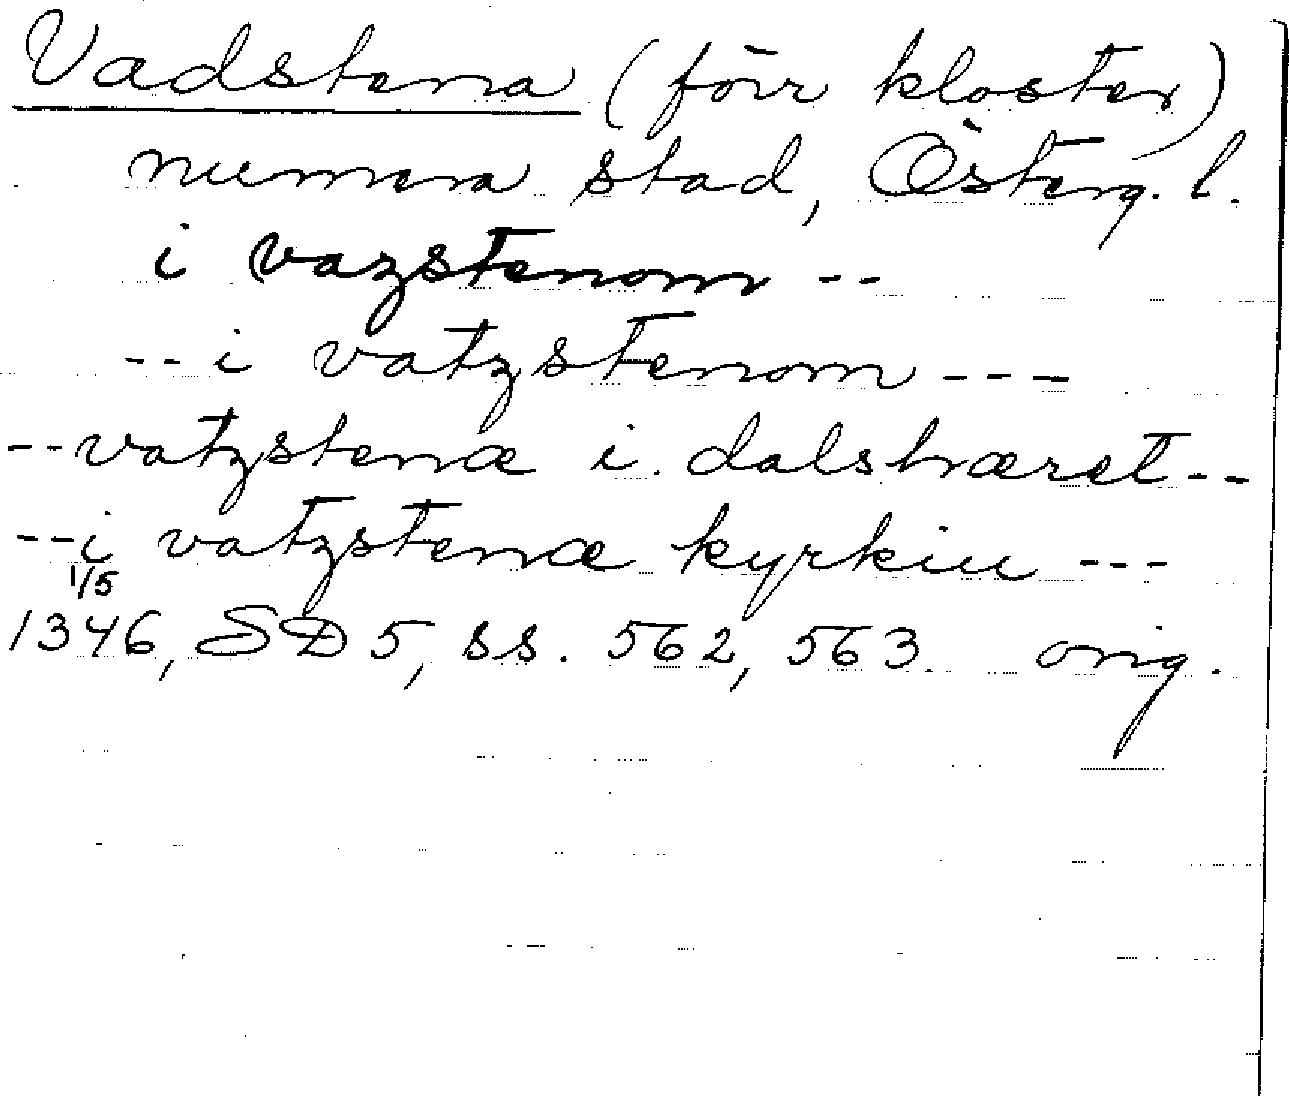 Vadstena (förr kloster)
numera stad, Österg. l.
i vazstenom --
-- i vatzstenom ---
-- vatzstenæ i dalshæret --
-- i vatzstenæ kyrkiu ---
1/5
1346, SD 5, ss. 562, 563. orig.